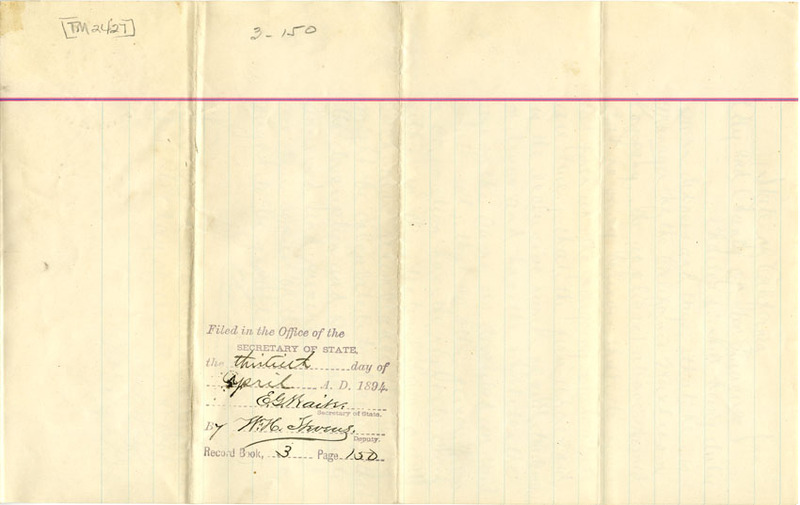 [TM24/27]
3-150
Filed in the Office of the
SECRETARY OF STATE,
the thirtieth day of
April A. D. 1894.
E.G. Waite
Secretary of State.
By W.H. Stevens.
Deputy.
Record Book, 3 Page 150